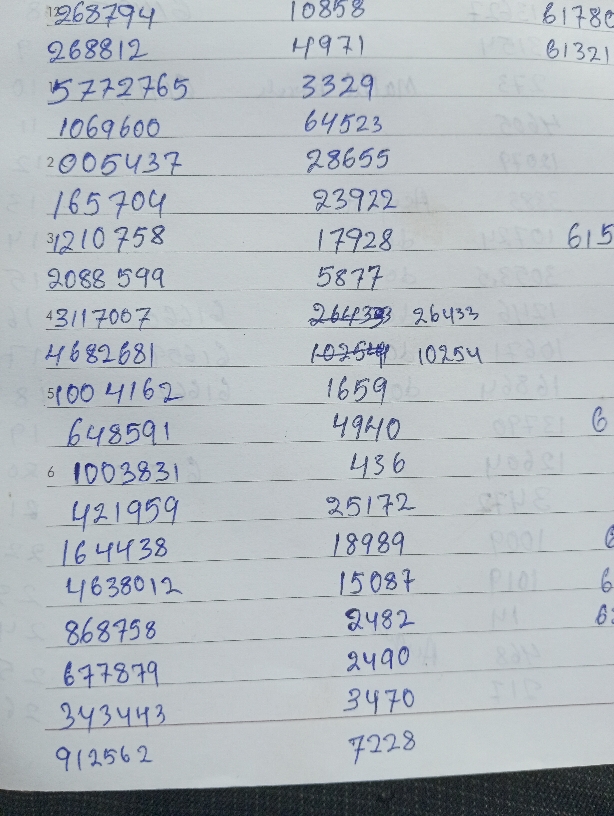 268794 10858 6178
268812 4971 61321
5772765 3329
1069600 64523
2 005437 28655
165704 23922
3 1210758 17928 615
2088599 5877
4 3117007 26433
4682681 10254
5 1004162 1659
648591 4940 6
6 1003831 436
421959 25172
164438 18989
4638012 15087 6
868758 2482 6
677879 2490
343443 3470
912562 7228